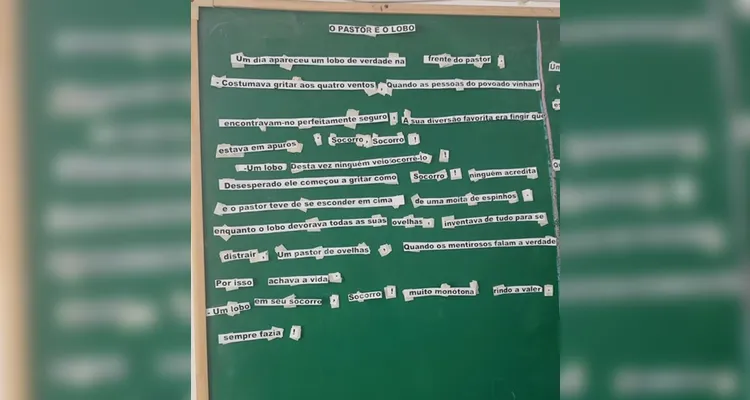 O PASTOR E O LOBO
Um dia apareceu um lobo de verdade na frente do pastor .
- Costumava gritar aos quatro ventos . Quando as pessoas do povoado vinham
encontravam-no perfeitamente seguro . A sua diversão favorita era fingir que
estava em apuros . Socorro , Socorro !
-Um lobo Desta vez ninguém veio ocorrê-lo !
Desesperado ele começou a gritar como Socorro ! ninguém acredita
e o pastor teve de se esconder em cima de uma moita de espinhos .
enquanto o lobo devorava todas as suas ovelhas . inventava de tudo para se
distrair . Um pastor de ovelhas , Quando os mentirosos falam a verdade
Por isso achava a vida .
- Um lobo em seu socorro . Socorro ! muito monotona . rindo a valer .
sempre fazia !